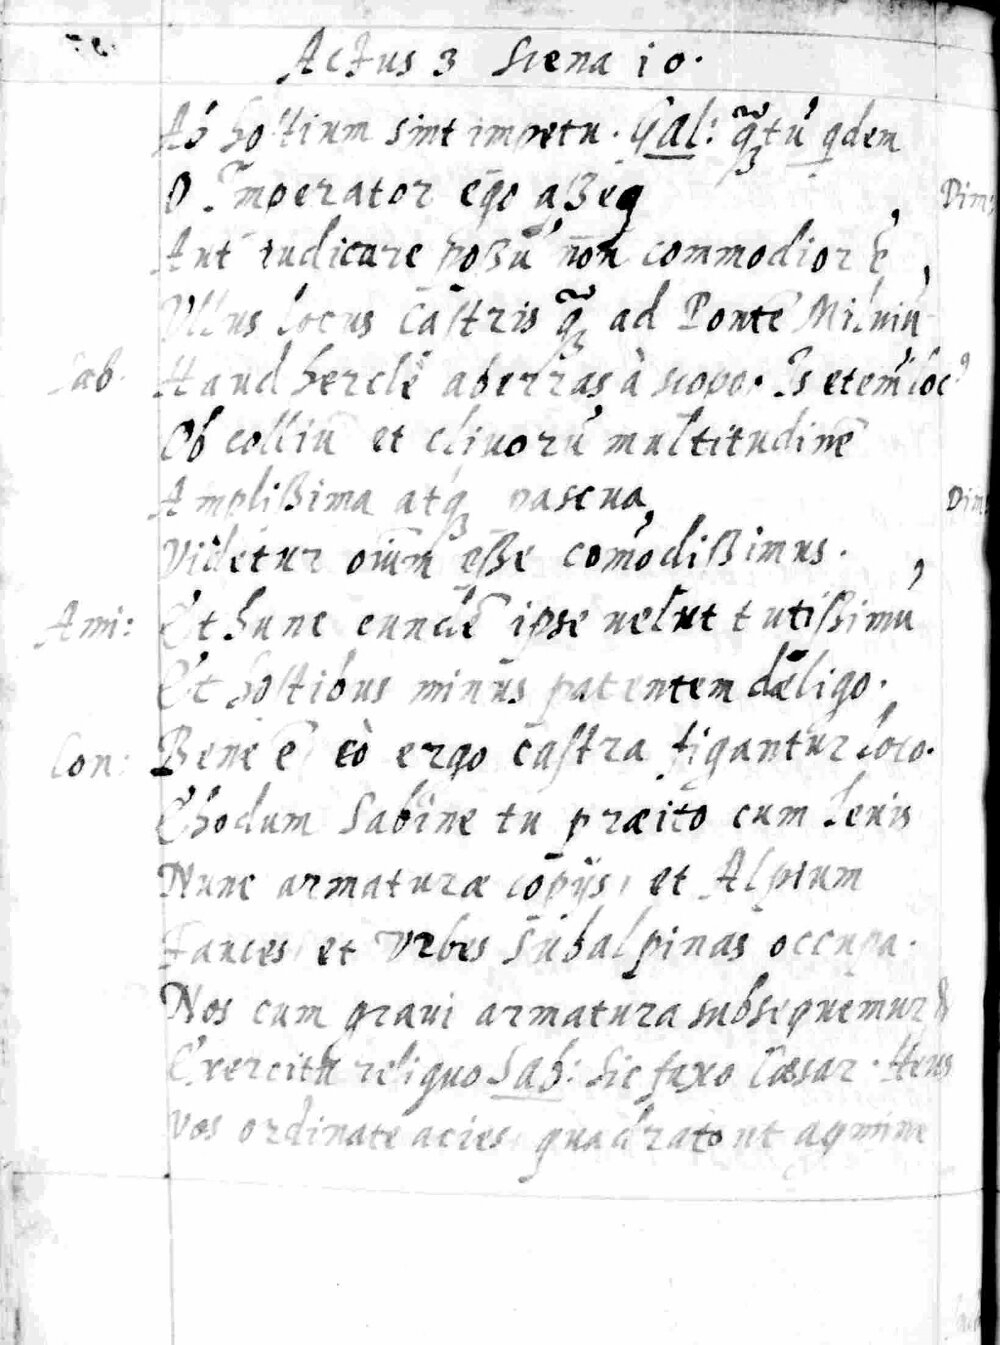 Actus 3 Scena 10.
Ab hostium sint impetu. Gal: q̃ꝫtũ qdem
O Imperator ego aßeq
Aut iudicare poßũ non commodior ẽ
Ullus locus Castris q̃ꝫ ad Pontẽ Miluiũ
Sab. Haud hercle aberras à scopo. Is etem loc9
Ob colliũ et clivorũ multitudinẽ
Amplißima atqꝫ pascua,
Videtur oium eße comodißimus.
Ami: Et hunc eundẽ ipse uelut tutißimũ
Et hostibus minus patentem dæligo.
Con: Bene ẽ eò ergo castra figantur loco.
Ehodum Sabine tu præito cum leuis
Nunc armaturæ copijs, et Alpium
Fauces, et Vrbes Subalpinas occupa.
Nos cum graui armatura subsequemur &
Exercitu reliquo Sab: Sic faxo Cæsar. Heus
Vos ordinate acies, quadrato ut agmine